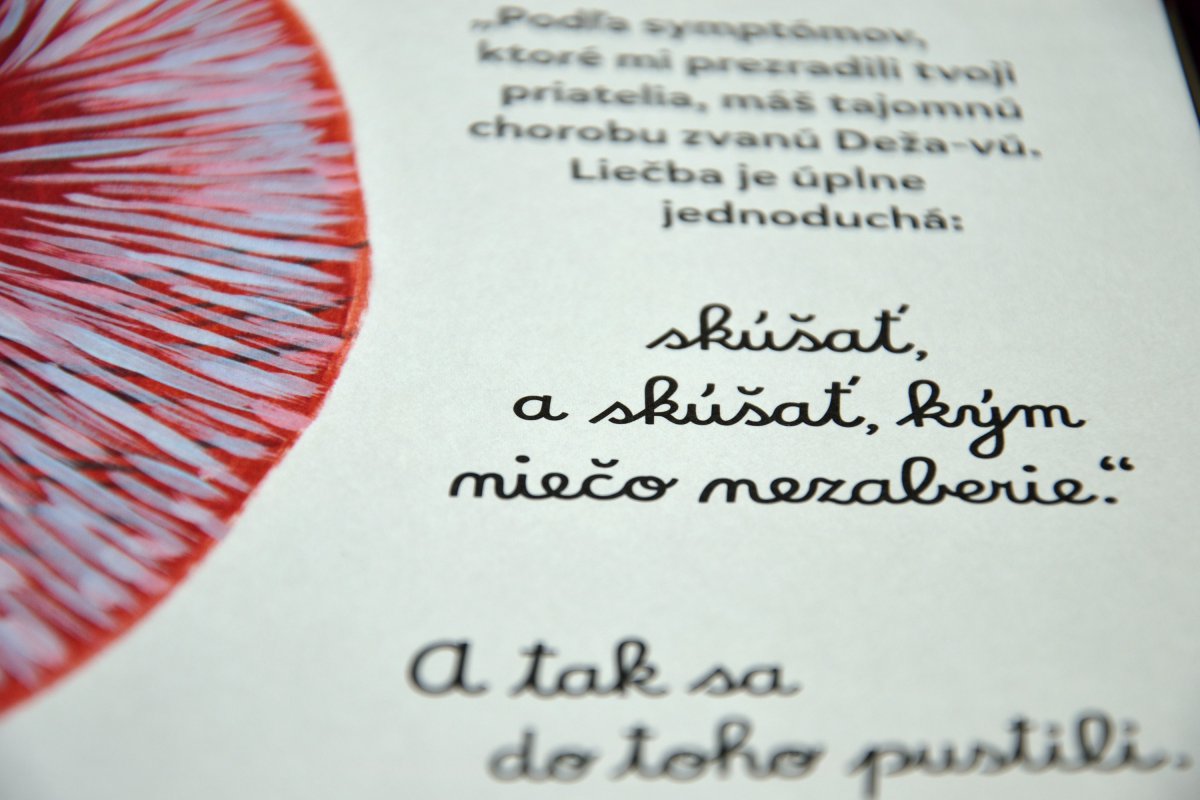 „Podľa symptómov,
ktoré mi prezradili tvoji
priatelia, máš tajomnú
chorobu zvanú Deža-vú.
Liečba je úplne
jednoduchá:
skúšať,
a skúšať, kým
niečo nezaberie.“
A tak sa
do toho pustili.